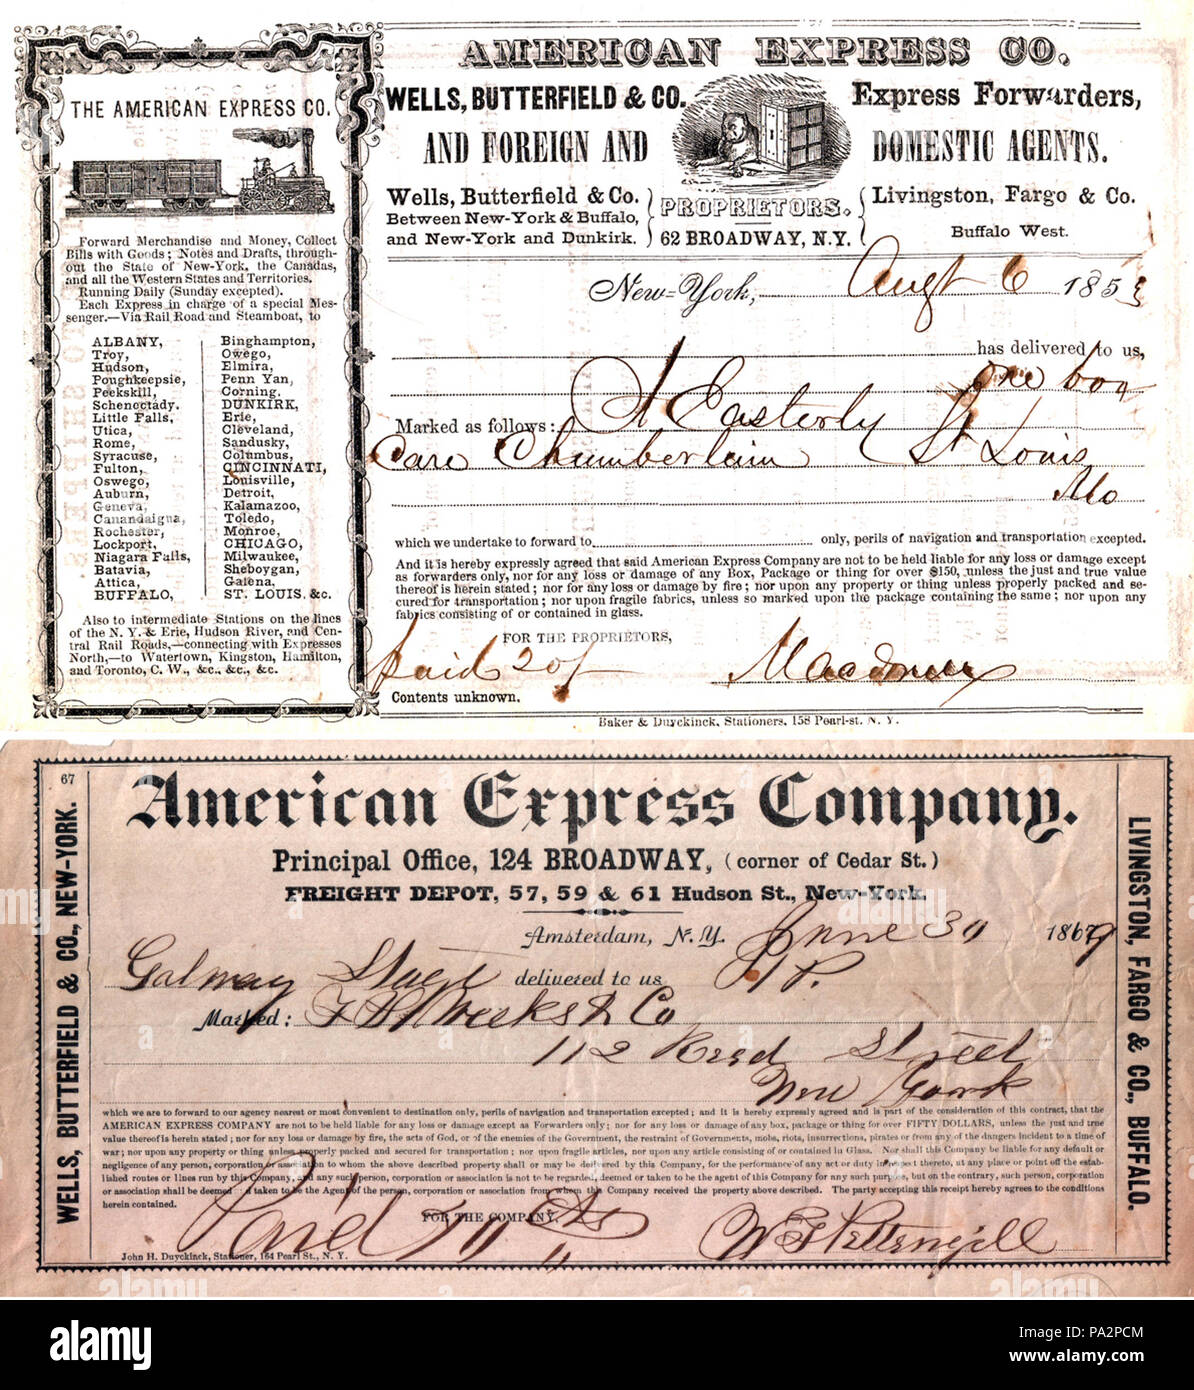 THE AMERICAN EXPRESS CO.
Forward Merchandise and Money, Collect
Bills with Goods; Notes and Drafts, through-
out the State of New-York, the Canadas,
and all the Western States and Territories.
Running Daily (Sunday excepted).
Each Express in charge of a special Mes-
senger.—Via Rail Road and Steamboat, to
ALBANY, Binghampton,
Troy, Owego,
Hudson, Elmira,
Poughkeepsie, Penn Yan,
Peekskill, Corning.
Schenectady. DUNKIRK,
Little Falls, Erie,
Utica, Cleveland,
Rome, Sandusky,
Syracuse, Columbus,
Fulton, CINCINNATI,
Oswego, Louisville,
Auburn, Detroit,
Geneva, Kalamazoo,
Canandaigua, Toledo,
Rochester, Monroe,
Lockport, CHICAGO,
Niagara Falls, Milwaukee,
Batavia, Sheboygan,
Attica, Galena,
BUFFALO, ST. LOUIS, &c.
Also to intermediate Stations on the lines
of the N. Y. & Erie, Hudson River, and Cen-
tral Rail Roads,—connecting with Expresses
North,—to Watertown, Kingston, Hamilton,
and Toronto, C. W., &c., &c., &c.
AMERICAN EXPRESS CO.
WELLS, BUTTERFIELD & CO. Express Forwarders,
AND FOREIGN AND DOMESTIC AGENTS.
Wells, Butterfield & Co. PROPRIETORS. Livingston, Fargo & Co.
Between New-York & Buffalo,
and New-York and Dunkirk. 62 BROADWAY, N.Y. Buffalo West.
New-York, Augt 6 1853
has delivered to us,
one box
Marked as follows: A Easterly
Care Chamberlain St Louis
Mo
which we undertake to forward to only, perils of navigation and transportation excepted.
And it is hereby expressly agreed that said American Express Company are not to be held liable for any loss or damage except
as forwarders only, nor for any loss or damage of any Box, Package or thing for over $150, unless the just and true value
thereof is herein stated; nor for any loss or damage by fire; nor upon any property or thing unless properly packed and se-
cured for transportation; nor upon fragile fabrics, unless so marked upon the package containing the same; nor upon any
fabrics consisting of or contained in glass.
FOR THE PROPRIETORS,
paid 20/
Contents unknown.
Baker & Duyckinck, Stationers, 158 Pearl-st. N. Y.
67
WELLS, BUTTERFIELD & CO., NEW-YORK.
American Express Company.
Principal Office, 124 BROADWAY, (corner of Cedar St.)
FREIGHT DEPOT, 57, 59 & 61 Hudson St., New-York.
Amsterdam, N. Y. June 30 1869
Galway delivered to us
Marked: Weeks & Co
112 Street
New York
which we are to forward to our agency nearest or most convenient to destination only, perils of navigation and transportation excepted; and it is hereby expressly agreed and is part of the consideration of this contract, that the
AMERICAN EXPRESS COMPANY are not to be held liable for any loss or damage except as Forwarders only; nor for any loss or damage of any box, package or thing for over FIFTY DOLLARS, unless the just and true
value thereof is herein stated; nor for any loss or damage by fire, the acts of God, or of the enemies of the Government, the restraint of Governments, mobs, riots, insurrections, pirates or from any of the dangers incident to a time of
war; nor upon any property or thing unless properly packed and secured for transportation; nor upon fragile articles, nor upon any article consisting of or contained in Glass. Nor shall this Company be liable for any default or
negligence of any person, corporation or association to whom the above described property shall or may be delivered by this Company, for the performance of any act or duty in respect thereto, at any place or point off the estab-
lished routes or lines run by this Company, and any such person, corporation or association is not to be regarded, deemed or taken to be the agent of this Company for any such purpose, but on the contrary, such person, corporation
or association shall be deemed taken to be the Agent of the person, corporation or association from whom the Company received the property above described. The party accepting this receipt hereby agrees to the conditions
herein contained.
FOR THE COMPANY,
Paid
John H. Duyckinck, Stationer, 164 Pearl St., N. Y.
LIVINGSTON, FARGO & CO., BUFFALO.
alamy
Image ID: PA2PCM
www.alamy.com